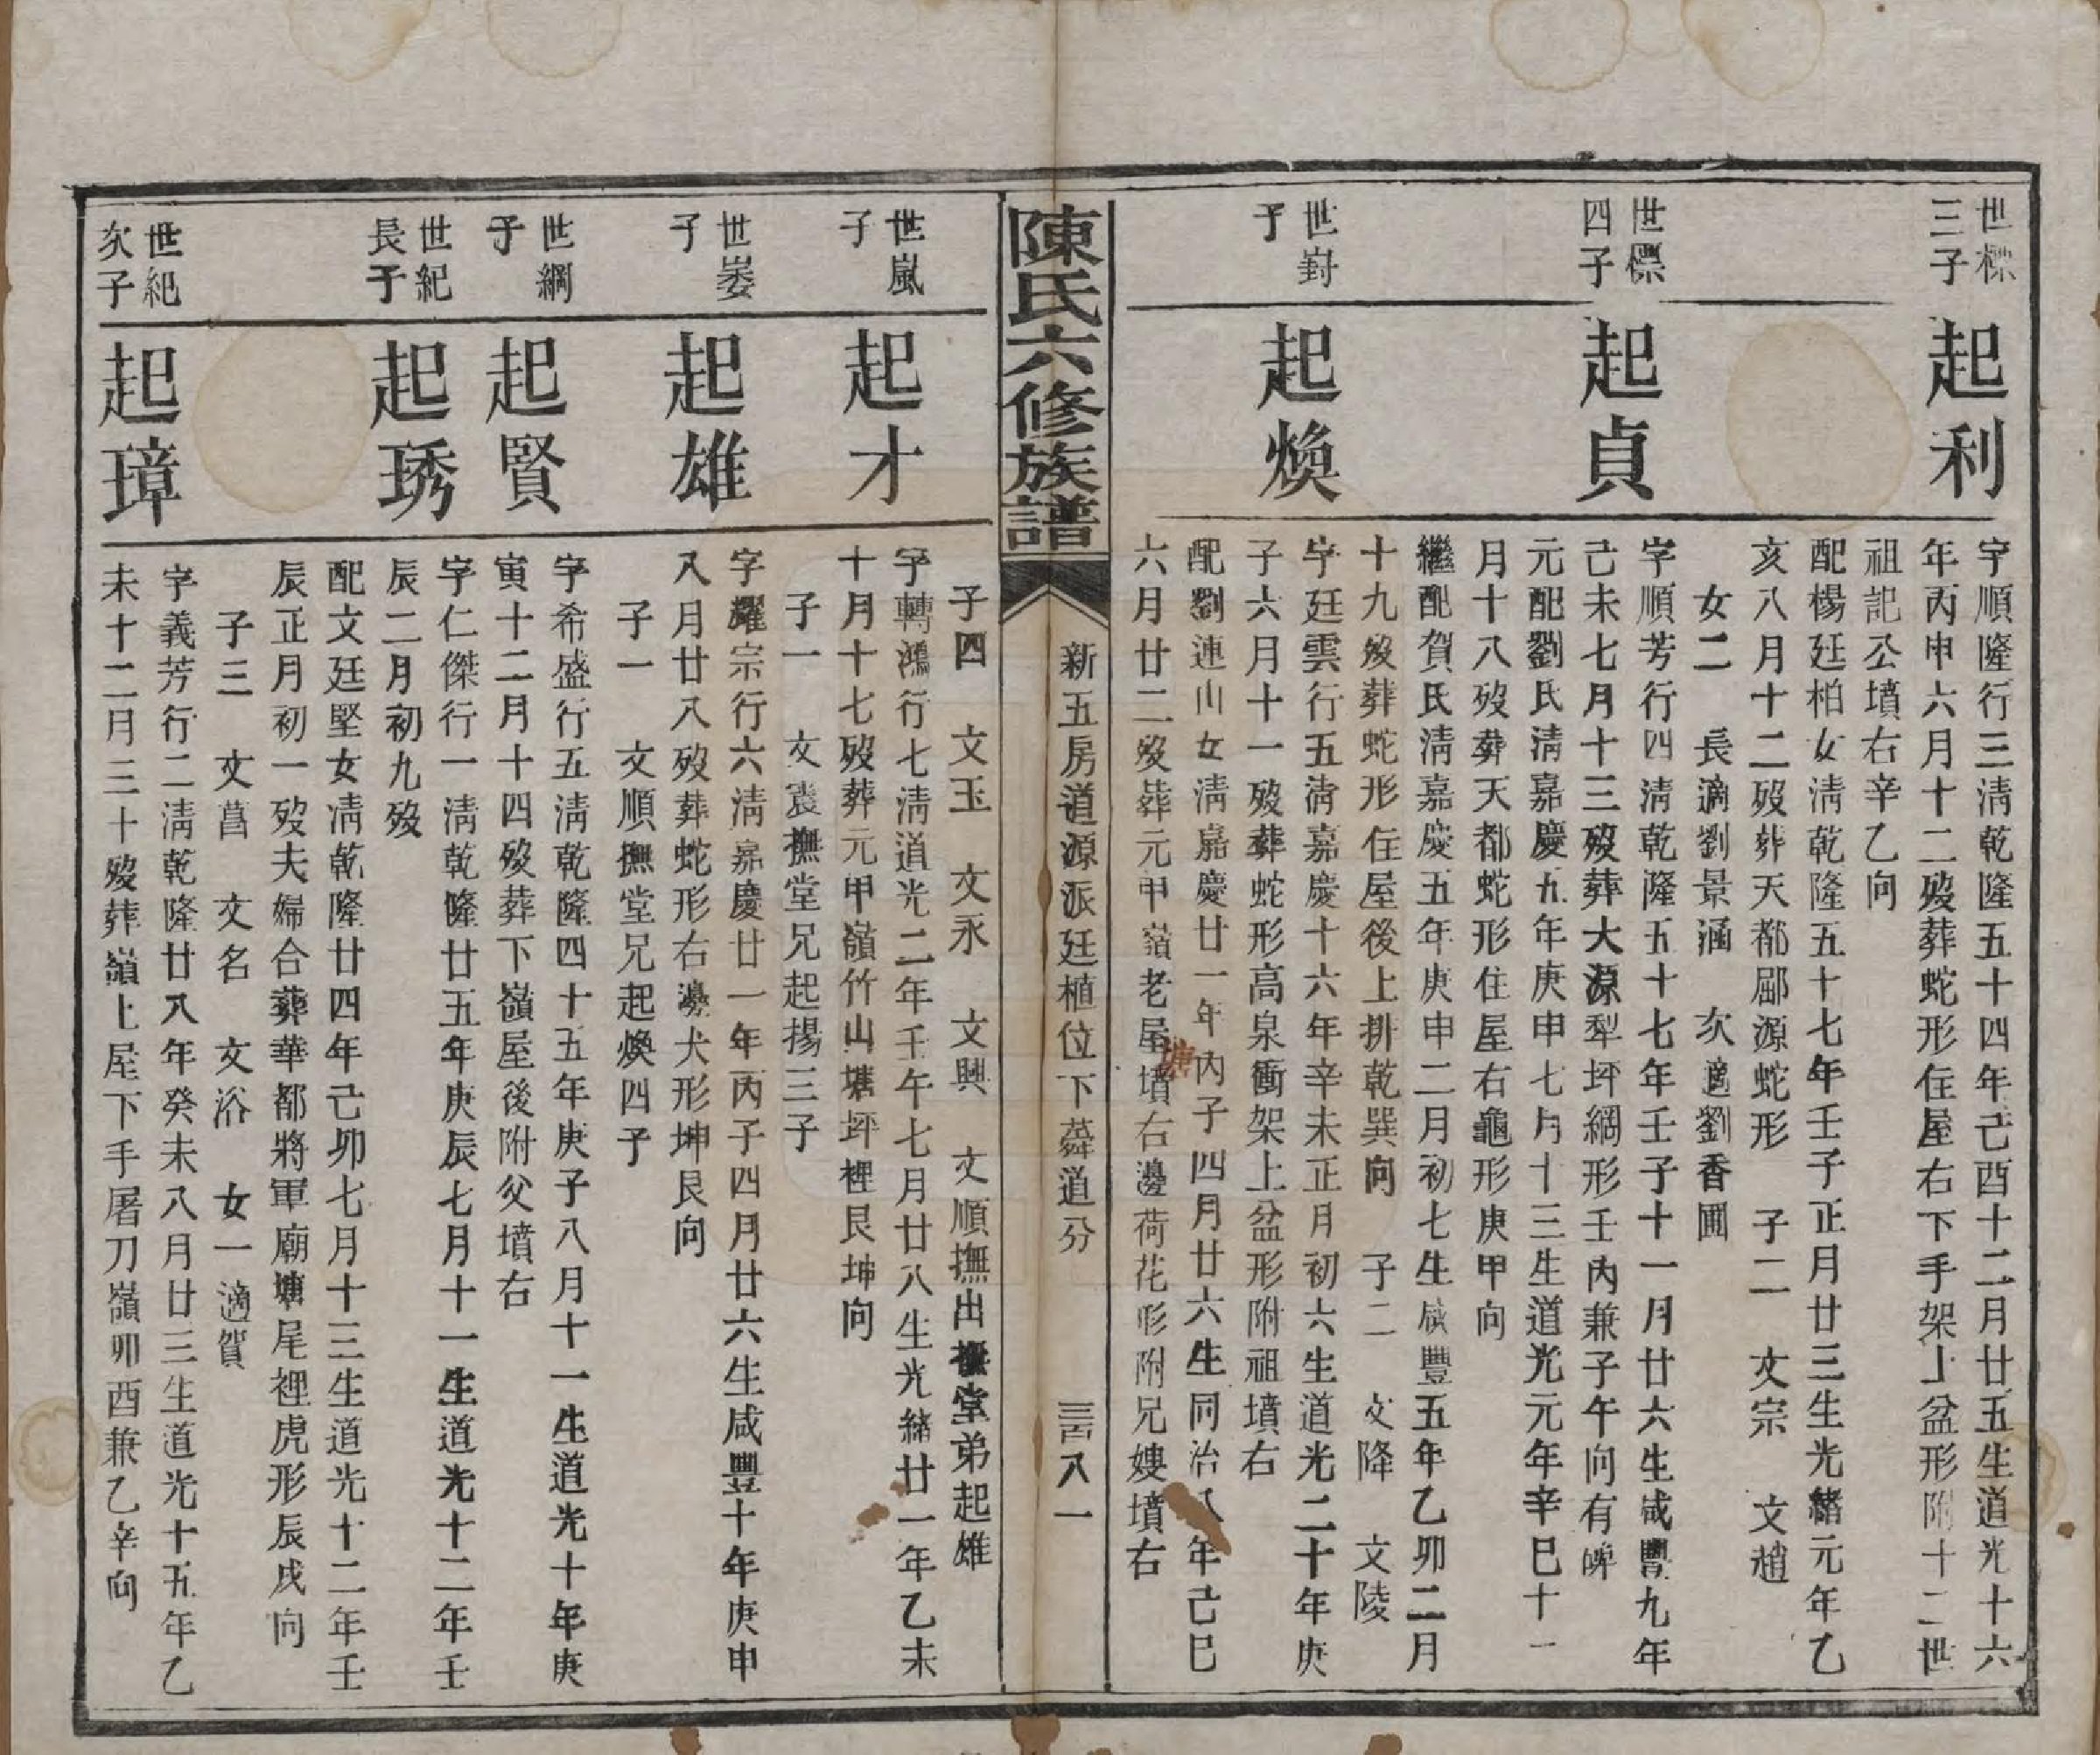 世標
三子
起利
字順隆行三淸乾隆五十四年己酉十二月廿五生道光十六
年丙申六月十二歿葬蛇形住屋右下手架上盆形附十二世
祖記公墳右辛乙向
配楊廷柏女淸乾隆五十七年壬子正月廿三生光緒元年乙
亥八月十二歿葬天都郿源蛇形　子二　文宗　文趙
女二　長適劉景涵　次適劉香圃
世標
四子
起貞
字順芳行四淸乾隆五十七年壬子十一月廿六生咸豐九年
己未七月十三歿葬大源犁坪綢形壬丙兼子午向有碑
元配劉氏淸嘉慶九年庚申七月十三生道光元年辛巳十一
月十八歿葬天都蛇形住屋右龜形庚甲向
繼配賀氏淸嘉慶五年庚申二月初七生咸豐五年乙卯二月
十九歿葬蛇形住屋後上排乾巽向　子二　文降　文陵
世崶
子
起煥
字廷雲行五淸嘉慶十六年辛未正月初六生道光二十年庚
子六月十一歿葬蛇形高泉衝架上盆形附祖墳右
配劉連山女淸嘉慶廿一年丙子四月廿六生同治八年己巳
六月廿二歿葬元甲嶺老屋墳右邊荷花形附兄嫂墳右
塘
陳氏六修族譜
新五房道源派廷植位下舜道分
三百八一
子四　文玉　文永　文興　文順撫出撫堂弟起雄
世嵐
子
起才
字轉鴻行七淸道光二年壬午七月廿八生光緒廿一年乙未
十月十七歿葬元甲嶺竹山塘坪裡艮坤向
子一　文袁撫堂兄起揚三子
世崣
子
起雄
字耀宗行六淸嘉慶廿一年丙子四月廿六生咸豐十年庚申
八月廿八歿葬蛇形右邊犬形坤艮向
子一　文順撫堂兄起煥四子
世綱
子
起賢
字希盛行五淸乾隆四十五年庚子八月十一生道光十年庚
寅十二月十四歿葬下嶺屋後附父墳右
世紀
長子
起琇
字仁傑行一淸乾隆廿五年庚辰七月十一生道光十二年壬
辰二月初九歿
配文廷堅女淸乾隆廿四年己卯七月十三生道光十二年壬
辰正月初一歿夫婦合葬華都將軍廟塘尾裡虎形辰戌向
子三　文菖　文名　文浴　女一適賀
世紀
次子
起璋
字義芳行二淸乾隆廿八年癸未八月廿三生道光十五年乙
未十二月三十歿葬嶺上屋下手屠刀嶺卯酉兼乙辛向